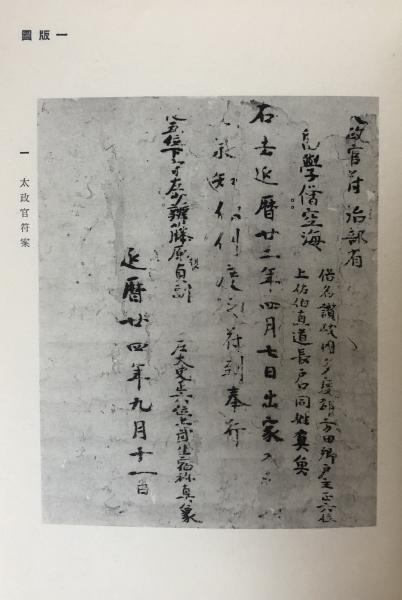 圖版一
一 太政官符案
太政官符 治部省
留學僧空海 俗名讃岐國多度郡方田郷戸主正六位
上佐伯直道長戸口同姓真魚
右去延暦廿二年四月七日出家入
承知 依例度之 符到奉行
從五位下守左少辨藤原貞副 左大史正六位上武生宿祢真象
延暦廿四年九月十一日